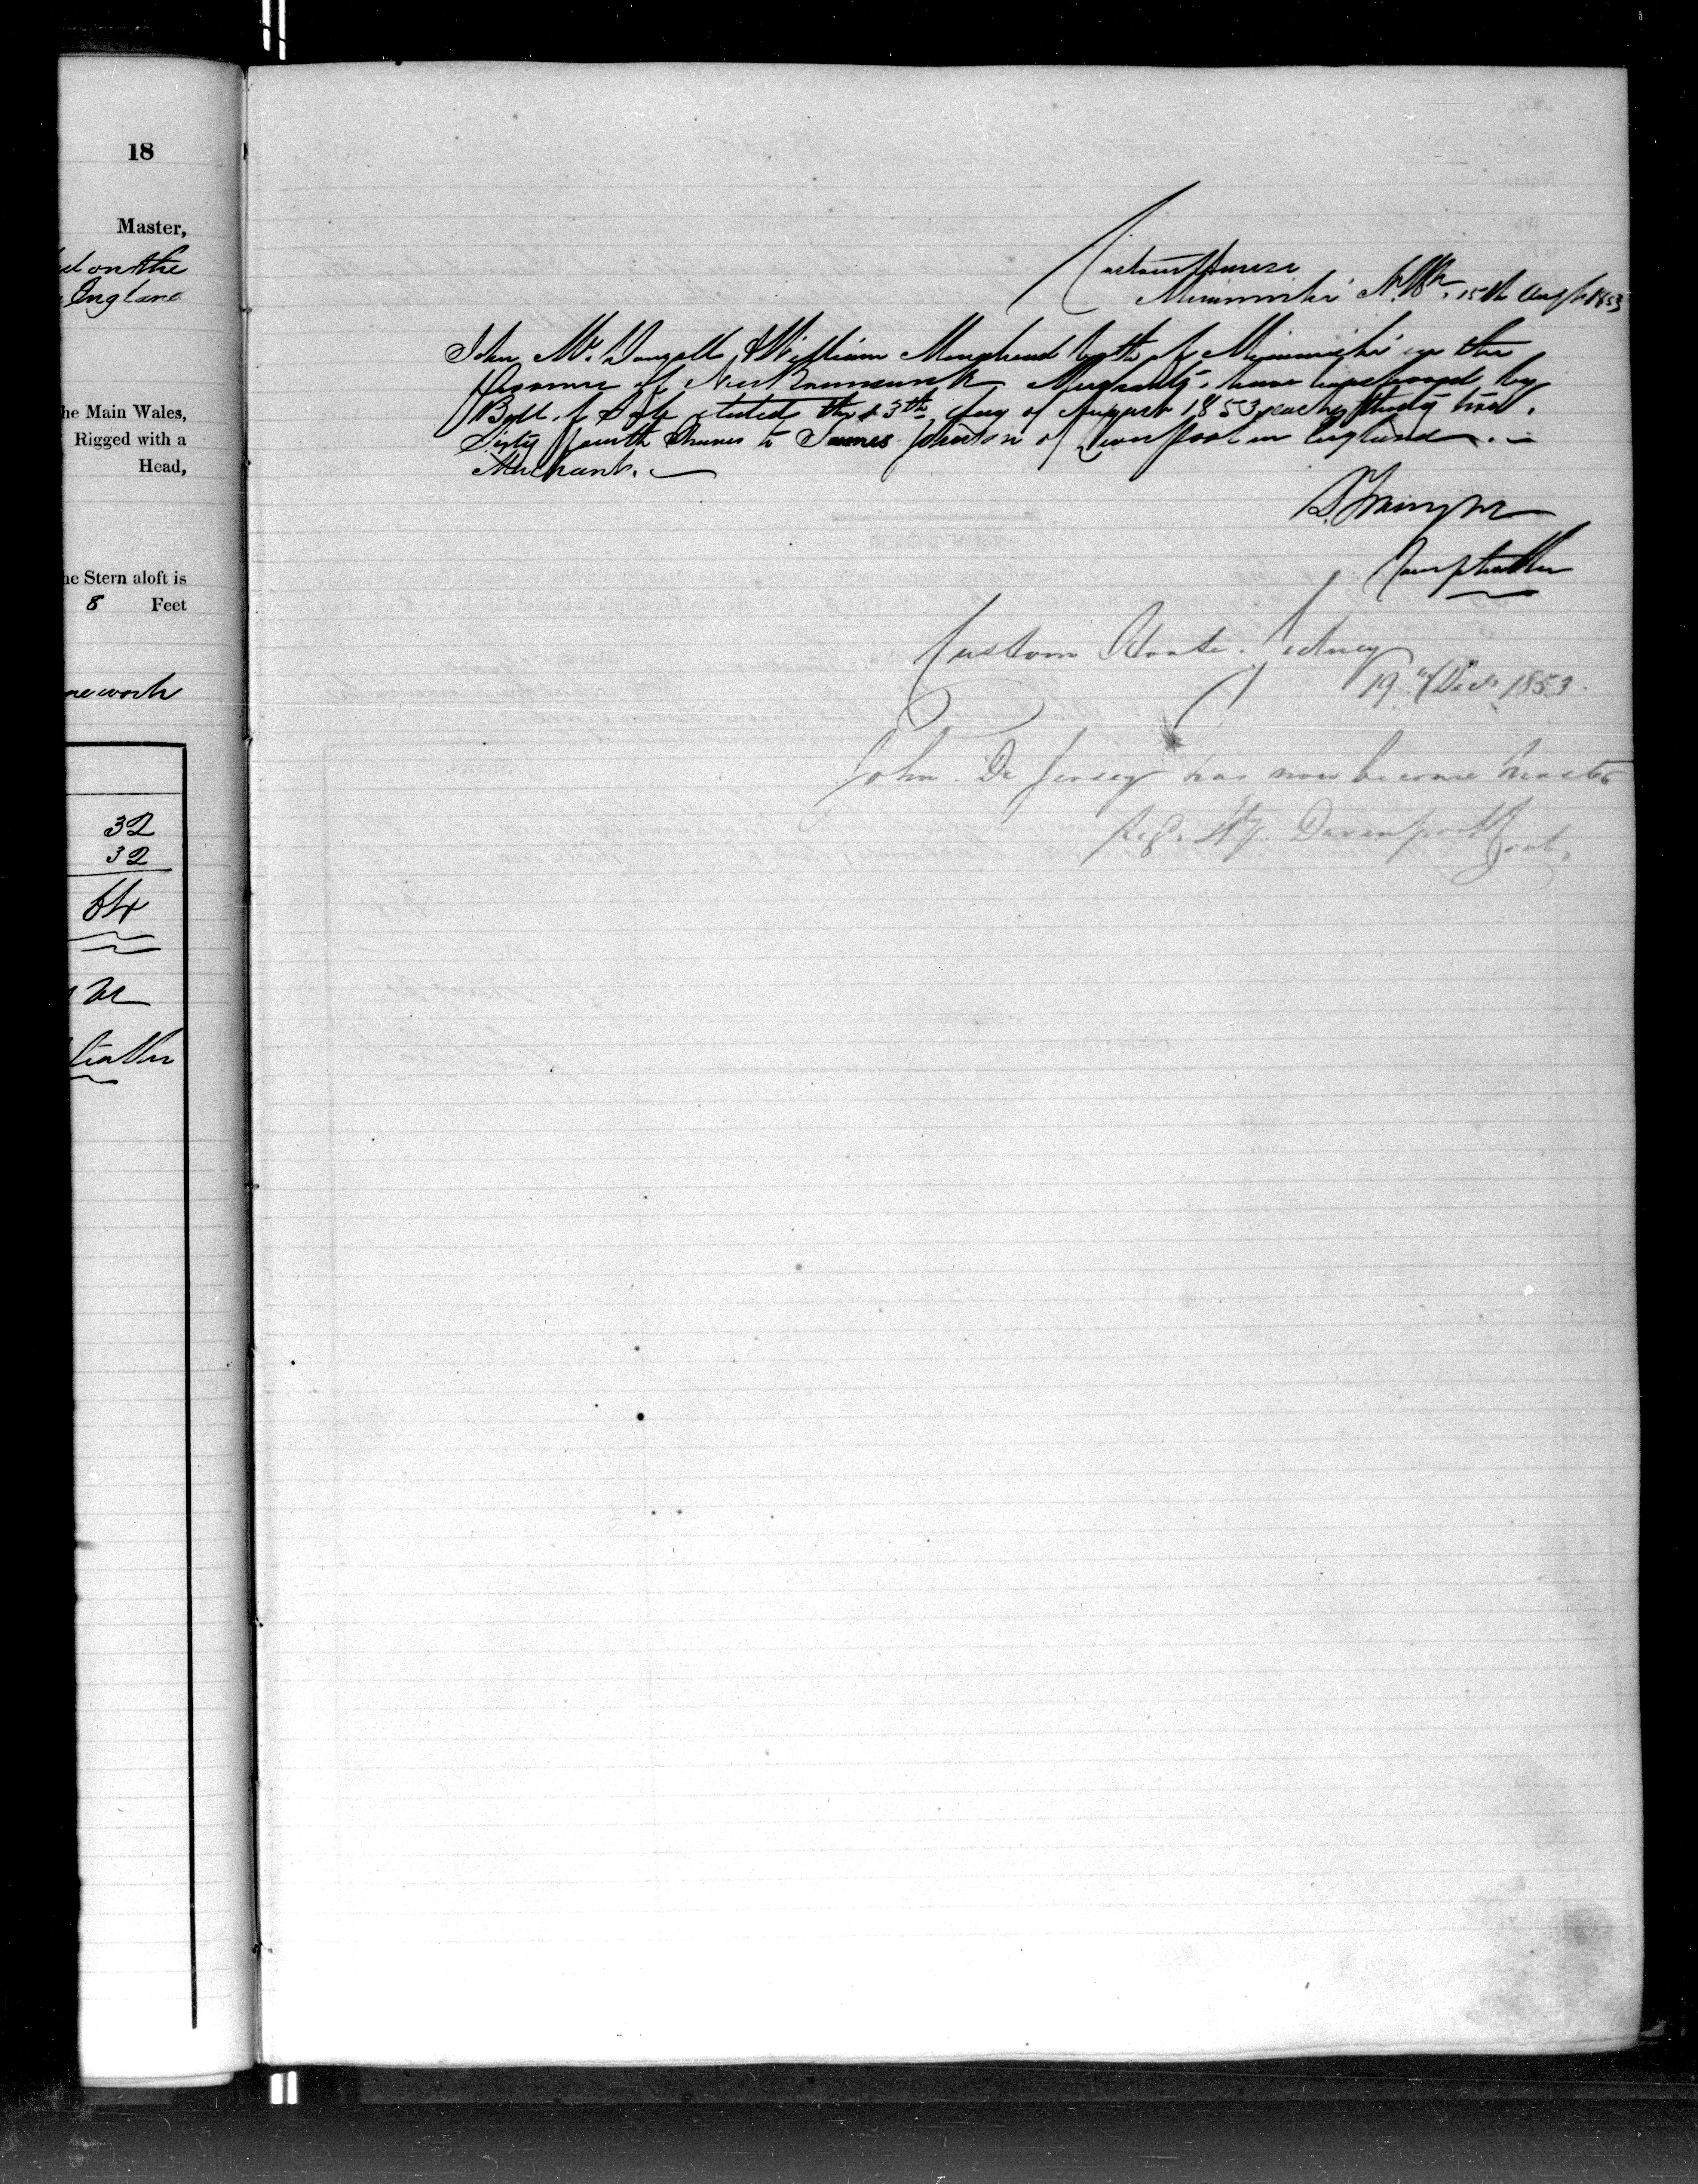 18
Master,
on the
England
he Main Wales,
Rigged with a
Head,
he Stern aloft is
8 Feet
work
32
32
64
Custom House
Miramichi N.Bk. 15th Augt 1853
John McDougall & William Muirhead both of Miramichi in the
Province of New Brunswick Merchants, have transferred by
Bill of Sale dated the 13th day of August 1853 each thirty two
Sixty fourth Shares to James Johnson of Liverpool in England
Merchant.
Comptroller
Custom House. Sydney
19th Decr 1853.
John De Jersey has now become Master
Sigd. Davenport